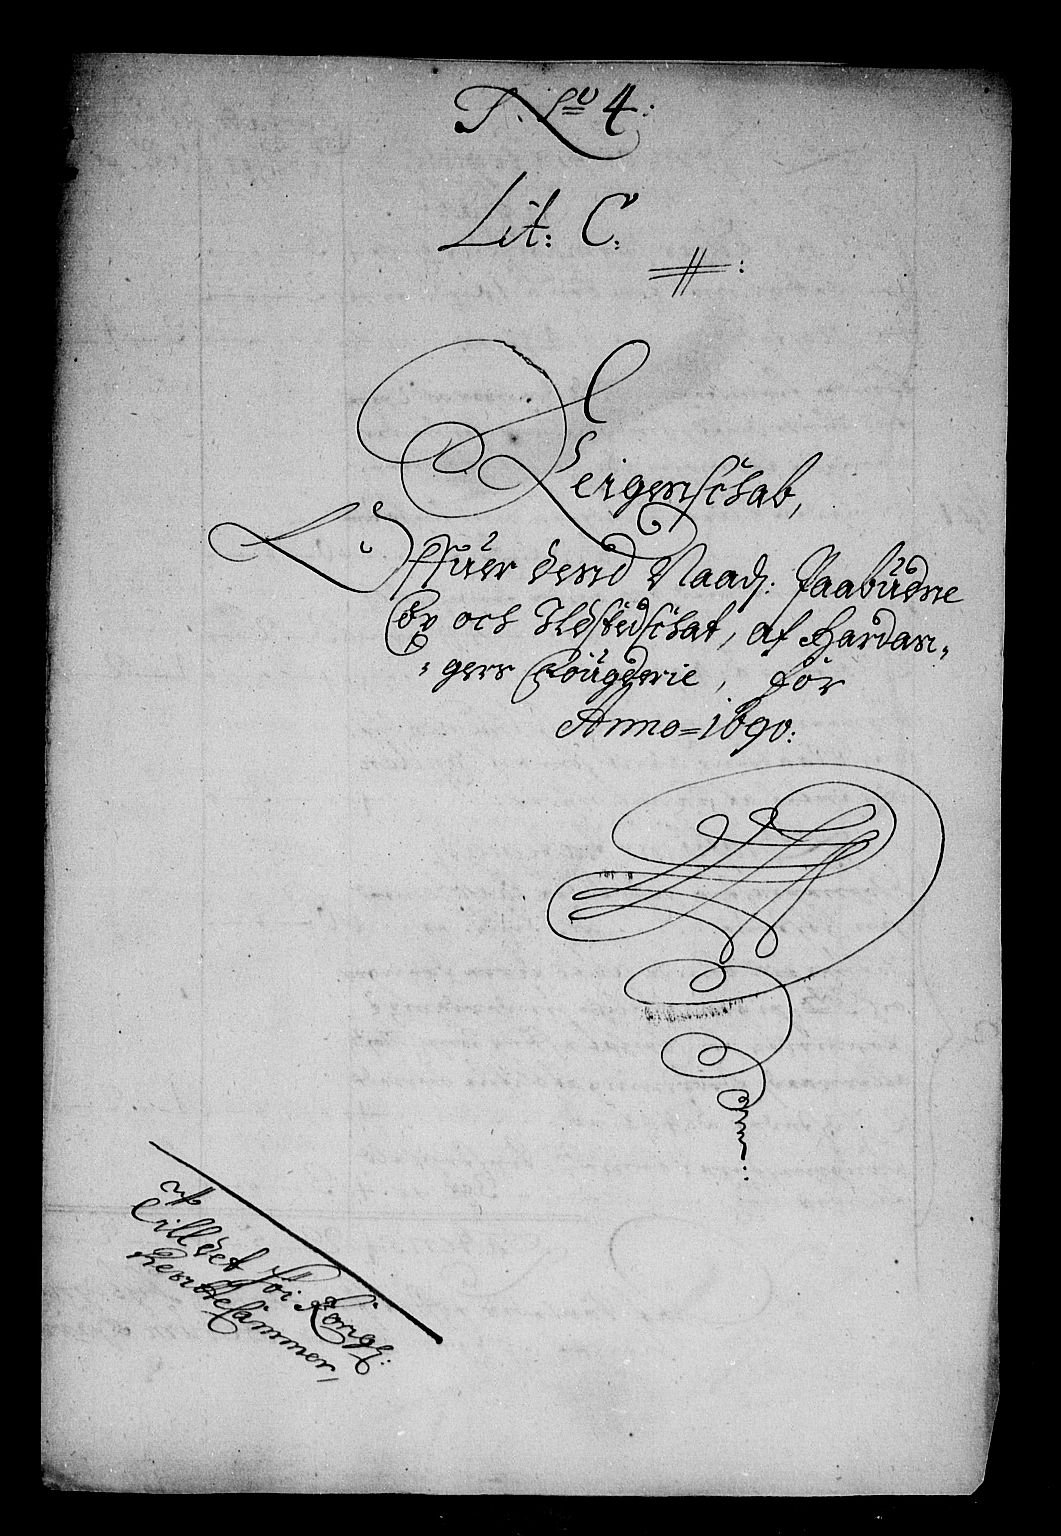 P. No 4:
Lit: C:
Reigenschab,
Offuer dend Naadst: Paabudne
Ox och Sløstedschat, af Hardan„
„gers Fougderie, for
Anno = 1690:
Till det høi Kongl:
Rentte Cammer,